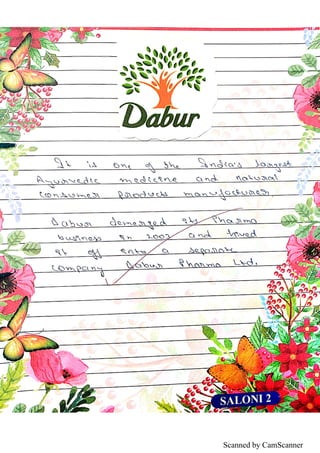 Dabur
It is one of the India's largest
Ayurvedic medicine and natural
consumer products manufacturer
Dabur demerged its Pharma
business in 2003 and hived
it off into a separate
company Dabur Pharma Ltd.
SALONI 2
Scanned by CamScanner